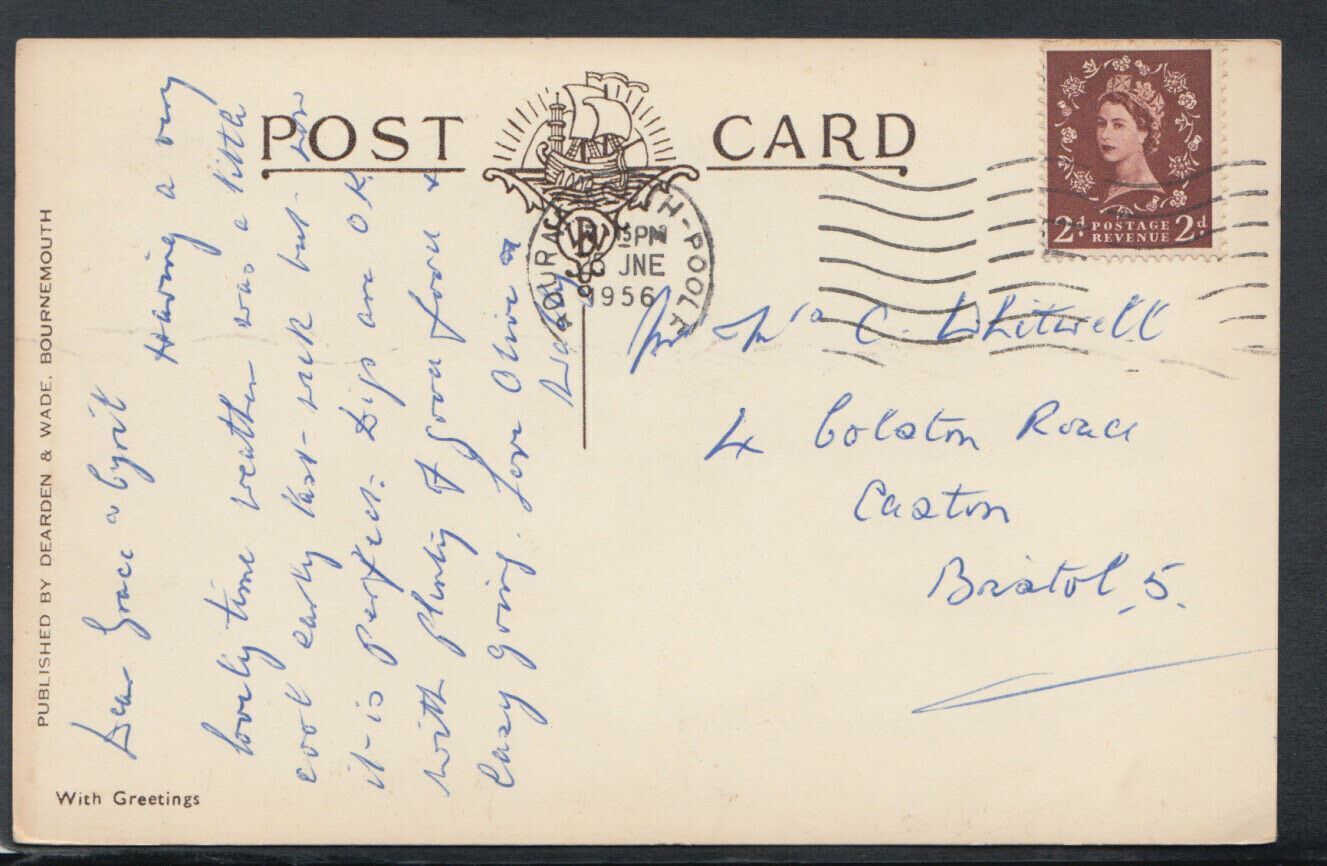 POST CARD
BOURNEMOUTH-POOLE
15PM
JNE
1956
2d POSTAGE REVENUE 2d
PUBLISHED BY DEARDEN & WADE, BOURNEMOUTH
With Greetings
Dear Grace & Cyril
Having a very
lovely time weather was a little
cool early last week but now
it is perfect. Digs are O.K.
with plenty of good food &
easy going. Love Olive &
Mr Mrs C. Whitwell
4 Colston Road
Easton
Bristol 5.